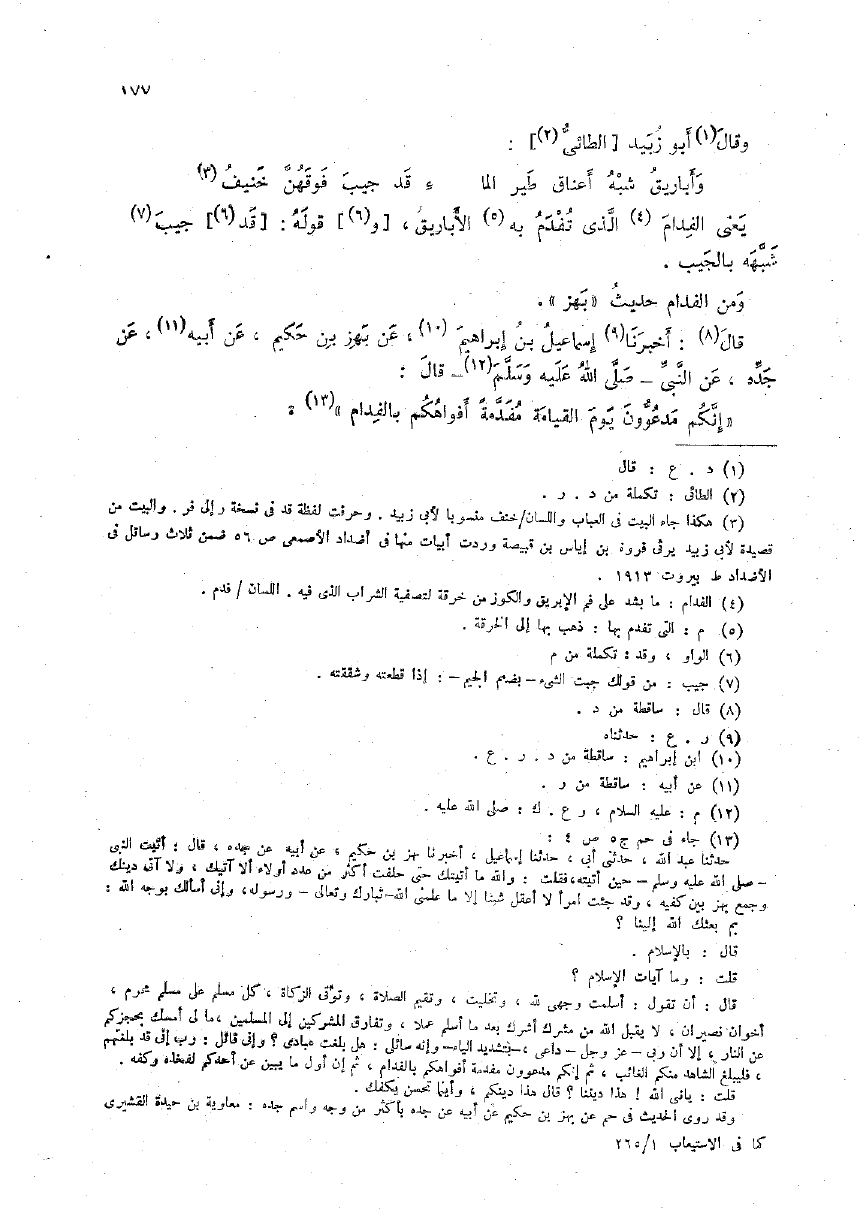 ١٧٧
وقالَ(١) أَبو زُبَيد [ الطائىُّ(٢)] :
وَأَباريقُ شبْهُ أَعناق طَير الما ءِ قَد جيبَ فَوقَهُنَّ خَنيفُ(٣)
يَعنى الفِدامَ (٤) الَّذى تُفْدَمُ به (٥) الأَباريقُ ، [ و(٦)] قولَهُ : [قَد(٦)] جيبَ(٧)
شَبَّهَه بالجَيب .
وَمن الفدام حديثُ «بَهز » .
قالَ(٨) : أَخبرَنَا(٩) إسماعيلُ بنُ إبراهيمَ (١٠) ، عَن بَهز بن حَكيم ، عَن أَبيه(١١) ، عَن
جَدِّه ، عَن النَّبىِّ – صَلَّى اللهُ عَلَيه وَسَلَّمَ(١٢)– قالَ :
«إنَّكُم مَدعُوُّونَ يَومَ القيامَة مُفَدَّمةً أَفواهُكُم بالفِدام »(١٣) :
(١) د . ع : قال
(٢) الطائى : تكملة من د . ر .
(٣) هكذا جاء البيت فى العباب واللسان/خنف منسوبا لأبى زبيد . وحرفت لفظة قد فى نسخة ر إلى فر . والبيت من
قصيدة لأبى زبيد يرثى فروة بن إياس بن قبيصة وردت أبيات منها فى أضداد الأصمعى ص ٥٦ ضمن ثلاث رسائل فى
الأضداد ط بيروت ١٩١٣ .
(٤) الفدام : ما يشد على فم الإبريق والكوز من خرقة لتصفية الشراب الذى فيه . اللسان / فدم .
(٥) م : التى تفدم بها : ذهب بها إلى الخرقة .
(٦) الواو ، وقد : تكملة من م
(٧) جيب : من قولك جبت الشىء – بضم الجيم – : إذا قطعته وشققته .
(٨) قال : ساقطة من د .
(٩) ر . ع : حدثناه
(١٠) ابن إبراهيم : ساقطة من د . ر . ع .
(١١) عن أبيه : ساقطة من ر .
(١٢) م : عليه السلام ، ر ع . ك : صلى الله عليه .
(١٣) جاء فى حم ج٥ ص ٤ :
حدثنا عبد الله ، حدثنى أبى ، حدثنا إسماعيل ، أخبرنا بهز بن حكيم ، عن أبيه عن جده ، قال : أتيت النبى
– صلى الله عليه وسلم – حين أتيته، فقلت : والله ما أتيتك حتى حلفت أكثر من عدد أولاء ألا آتيك ، ولا آتى دينك
وجمع بهز بين كفيه ، وقد جئت امرأ لا أعقل شيئا إلا ما علمنى الله–تبارك وتعالى – ورسوله، وإنى أسألك بوجه الله :
بم بعثك الله إلينا ؟
قال : بالإسلام .
قلت : وما آيات الإسلام ؟
قال : أن تقول : أسلمت وجهى لله ، وتخليت ، وتقيم الصلاة ، وتؤتى الزكاة ، كل مسلم على مسلم محرم ،
أخوان نصيران ، لا يقبل الله من مشرك أشرك بعد ما أسلم عملا ، وتفارق المشركين إلى المسلمين ،ما لى أمسك بحجزكم
عن النار ، إلا أن ربى – عز وجل – داعى ،–بتشديد الياء– وإنه سائلى : هل بلغت عبادى ؟ وإنى قائل : رب إنى قد بلغتهم
، فليبلغ الشاهد منكم الغائب ، ثم إنكم مدعوون مفدمة أفواهكم بالفدام ، ثم إن أول ما يبين عن أحدكم لفخذه وكفه .
قلت : يانبى الله ! هذا ديننا ؟ قال هذا دينكم ، وأينما تحسن يكفك .
وقد روى الحديث فى حم عن بهز بن حكيم عن أبيه عن جده بأكثر من وجه واسم جده : معاوية بن حيدة القشيرى
كما فى الاستيعاب ٢٦٥/١